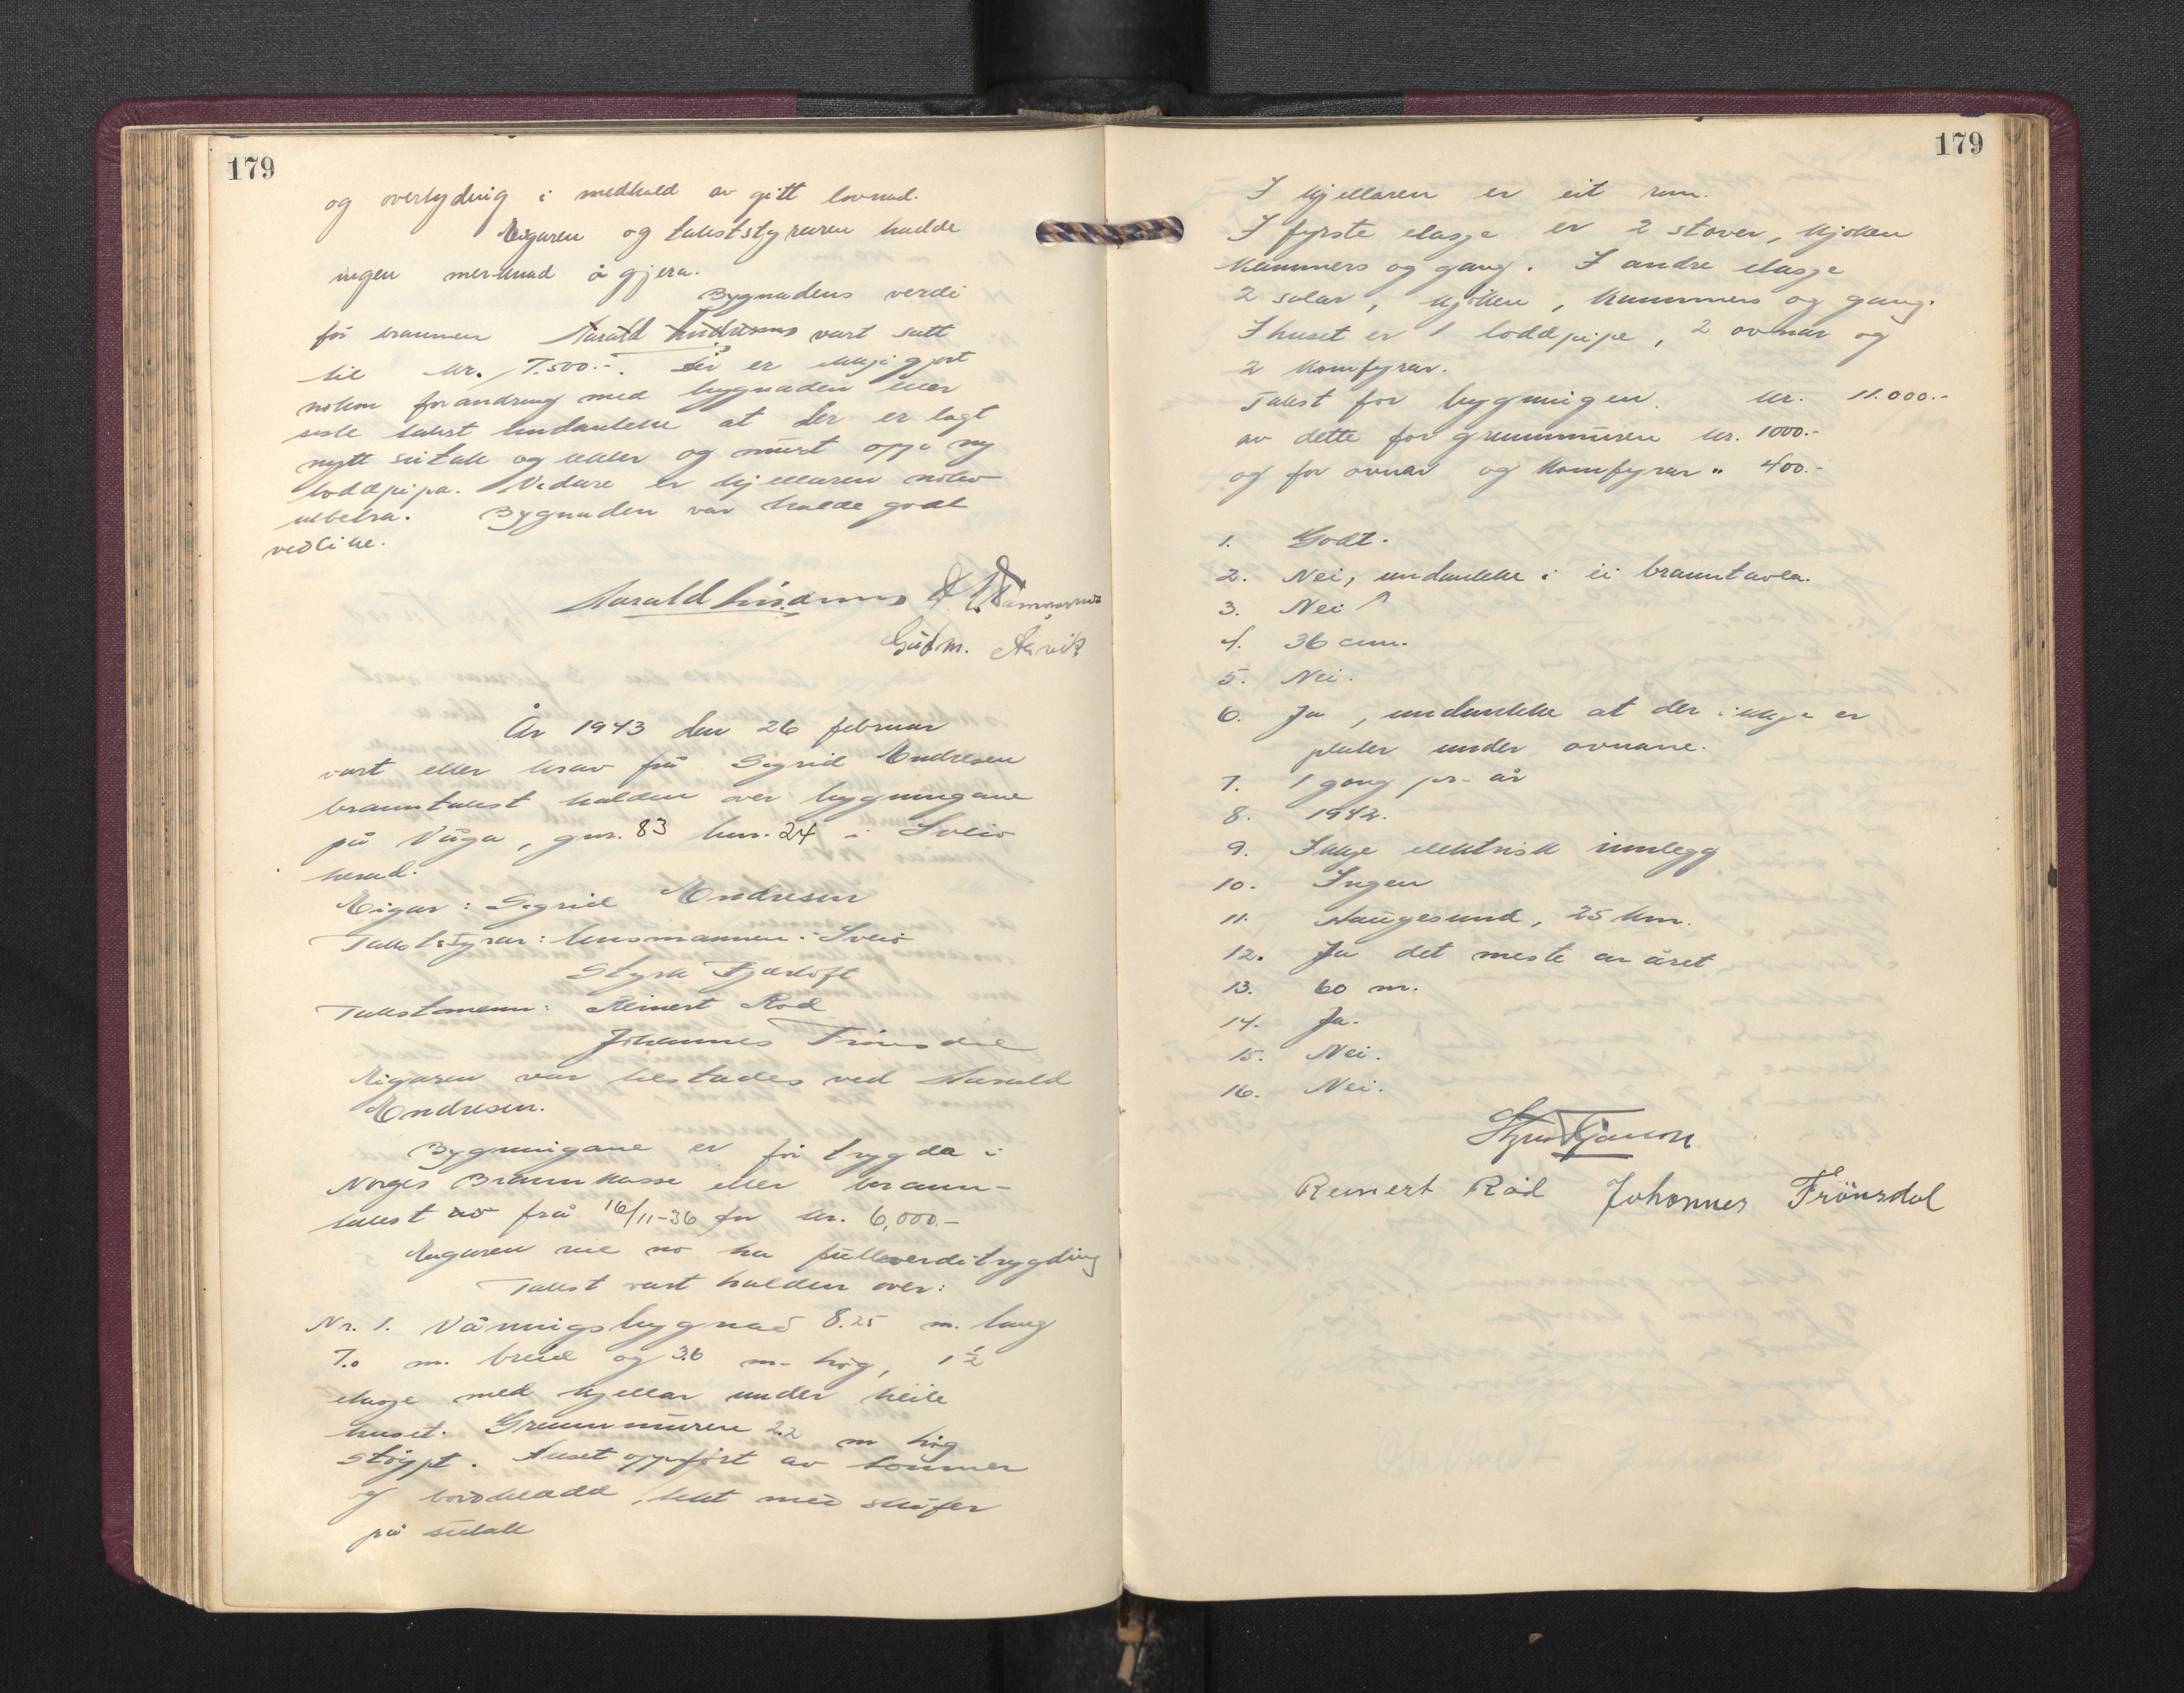 179
og overtyding i medhald av gitt lovnad.
Eigaren og takststyraren hadde
ingen merknad å gjera.
Bygnadens verdi
før brannen Harald vart sett
til kr. 7.500.-. Der er ikkje gjort
nokon forandring med bygnaden etter
siste takst undanteke at der er lagt
nytt sutak og heller og murt opp ny
loddpipa. Vidare er kjellaren noko
utbetra. Bygnaden var halde godt
vedlike.
Harald
Gutm. Aarvik
År 1943 den 26 februar
vart etter krav frå Sigrid Andresen
branntakst halden over bygningane
på Våga, gnr. 83 bnr. 24 i Sveio
herad.
Eigar: Sigrid Andresen
Takststyrar: lensmannen i Sveio
Styrk Fjærtoft
Takstmenn: Reinert Rød
Johannes Frönsdal
Eigaren var tilstades ved Harald
Andresen.
Bygningane er før trygda i
Norges Brannkasse etter brann-
takst av frå 16/11-36 for kr. 6,000.-
Eigaren vil no ha fullverditrygding
Takst vart halden over:
Nr. 1. Våningsbygnad 8.25 m. lang
7.0 m. breid og 3.6 m. høg, 1 1/2
etasje med kjellar under heile
huset. Grunnmuren 2.2 m høg
støypt. Huset oppført av tømmer
og bordkledd, tekt med skifer
på sutak
179
I kjellaren er eit rum.
I fyrste etasje er 2 stover, kjøken
kammers og gang. I andre etasje
2 salar, kjøken, kammers og gang.
I huset er 1 loddpipe, 2 ovnar og
2 komfyrar.
Takst for bygningen. kr. 11.000.-
av dette for grunnmuren kr. 1000.-
og for ovnar og komfyrar " 400.-
1. Godt.
2. Nei, undanteke i ei branntavla.
3. Nei
4. 36 cm.
5. Nei.
6. Ja, undanteke at der ikkje er
plater under ovnane.
7. 1 gong pr. år
8. 1942.
9. Ikkje elektrisk innlegg
10. Ingen
11. Haugesund, 25 km.
12. Ja det meste av året
13. 60 m.
14. Ja.
15. Nei.
16. Nei.
Styrk Fjærtoft
Reinert Rød Johannes Frönsdal